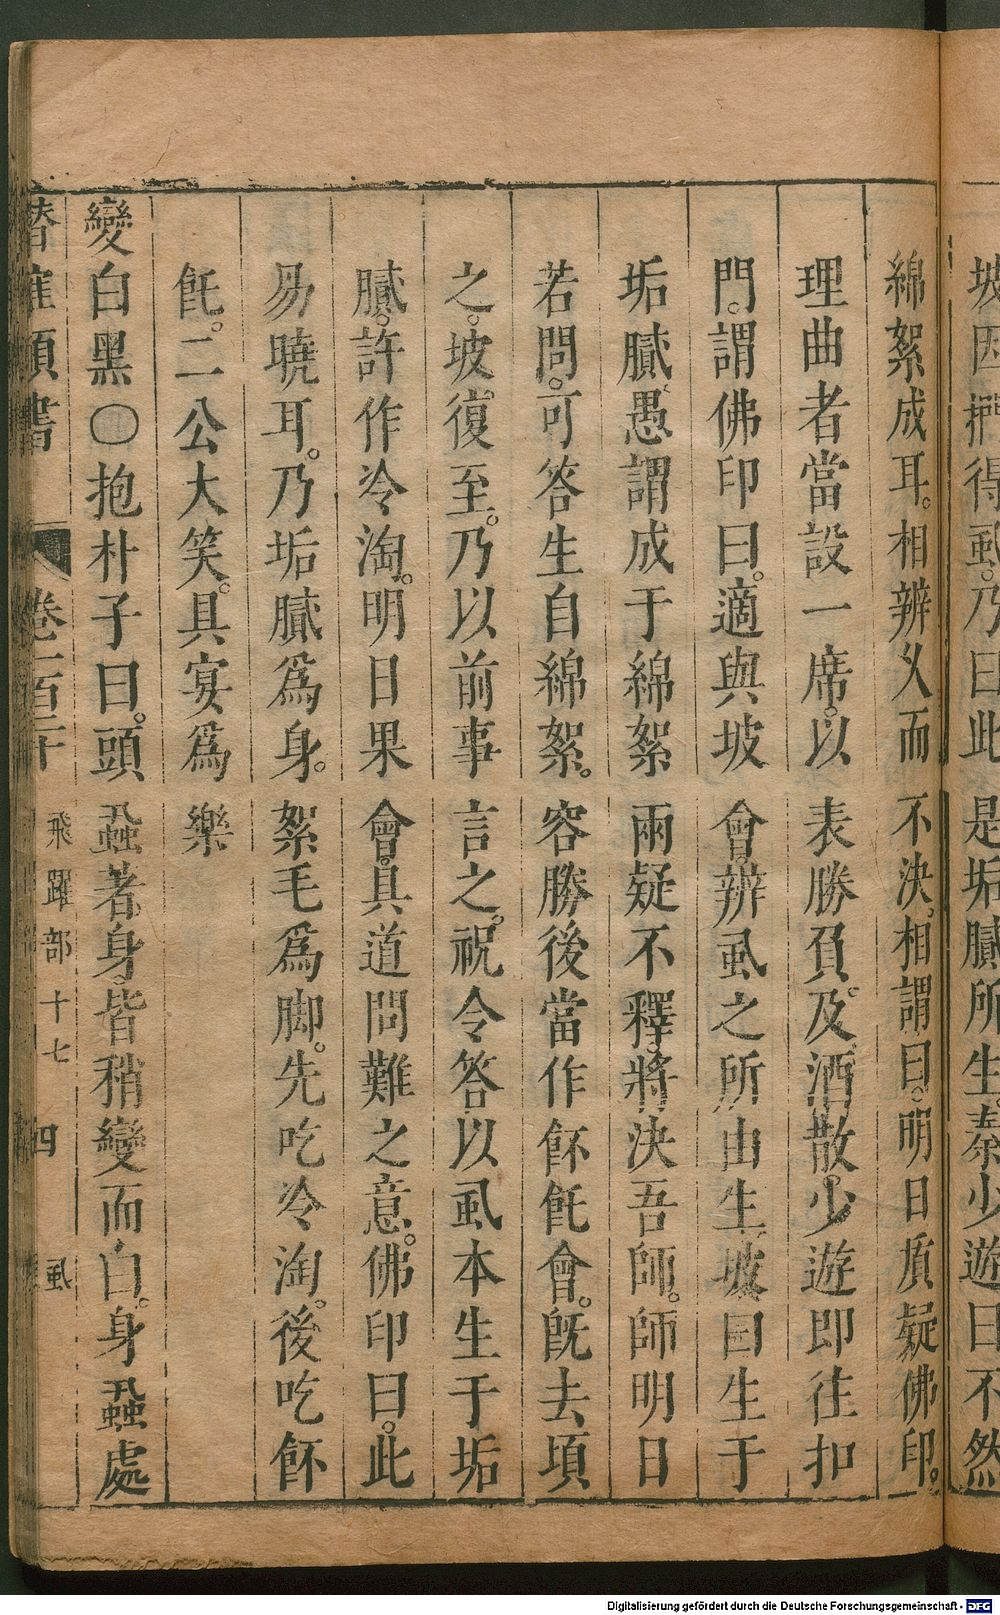 坡因捫得虱。乃曰此是垢膩所生。秦少遊曰不然
綿絮成耳。相辨久而不決。相謂曰。明日質疑佛印。
理曲者當設一席。以表勝負。及酒散。少遊即往扣
門。謂佛印曰。適與坡會。辨虱之所由生。坡曰生于
垢膩。愚謂成于綿絮兩疑不釋。將決吾師。師明日
若問。可答生自綿絮。容勝後當作飥飥會。旣去頃
之。坡復至。乃以前事言之。祝令答以虱本生于垢
膩。許作冷淘。明日果會。具道問難之意。佛印曰。此
易曉耳。乃垢膩爲身。絮毛爲脚。先吃冷淘。後吃
飥。二公大笑。具宴爲樂
變白黑○抱朴子曰。頭蝨著身。皆稍變而白。身蝨處
潛確類書 卷一百二十 飛躍部十七 四 虱
Digitalisierung gefördert durch die Deutsche Forschungsgemeinschaft - DFG